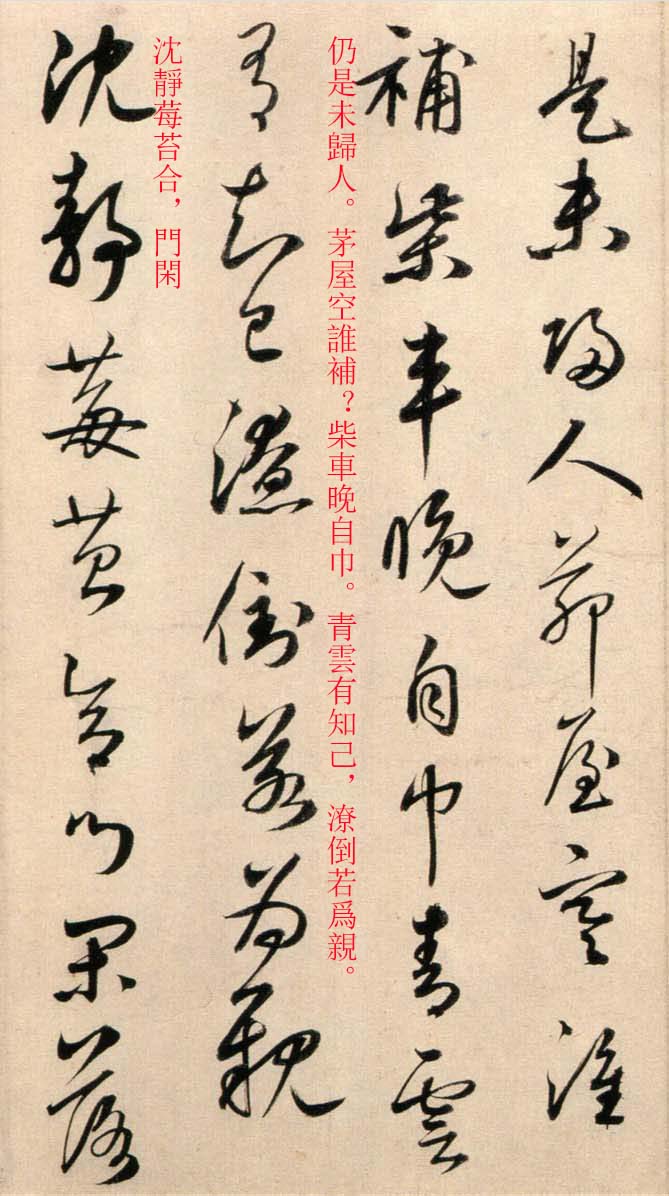 是未歸人茅屋空誰
仍是未歸人。茅屋空誰補？柴車晚自巾。青雲有知己，潦倒若爲親。
補柴車晚自巾青雲
有知己潦倒若爲親
沈靜莓苔合，門閑
沈靜莓苔合門閑落